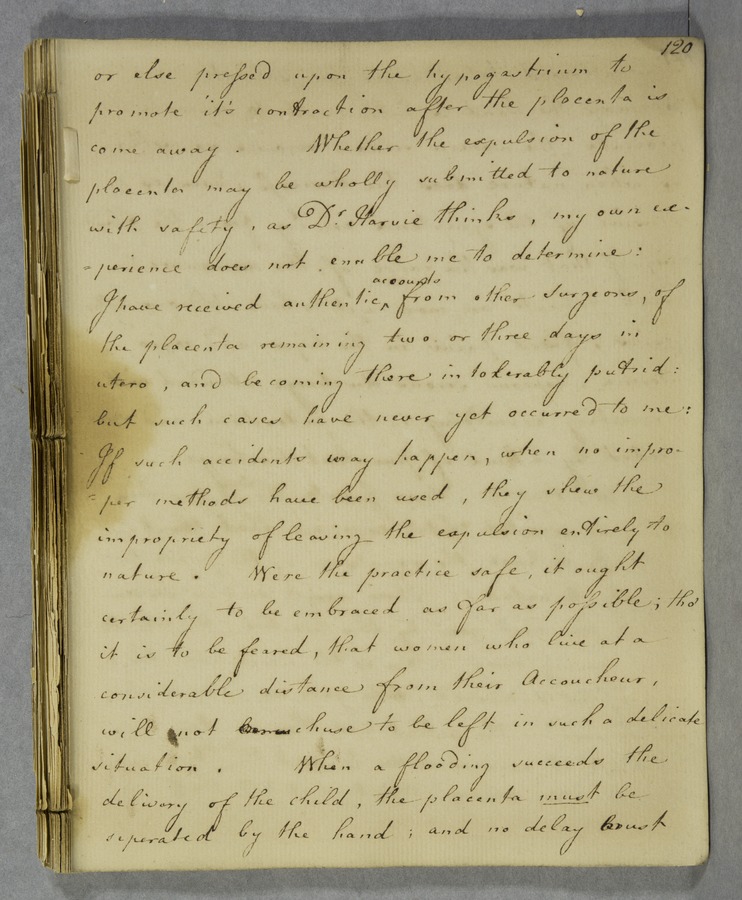 120
or else pressed upon the hypogastrium to
promote it's contraction after the placenta is
come away. Whether the expulsion of the
placenta may be wholly submitted to nature
with safety, as Dr Harvie thinks, my own ex-
=perience does not enable me to determine:
accounts
I have received authentic ‸ from other surgeons, of
the placenta remaining two or three days in
utero, and becoming there intolerably putrid:
but such cases have never yet occurred to me:
If such accidents may happen, when no impro-
=per methods have been used, they shew the
impropriety of leaving the expulsion entirely to
nature. Were the practice safe, it ought
certainly to be embraced as far as possible; tho'
it is to be feared, that women who live at a
considerable distance from their Accoucheur,
will not chuse to be left in such a delicate
situation. When a flooding succeeds the
delivery of the child, the placenta must be
seperated by the hand; and no delay must